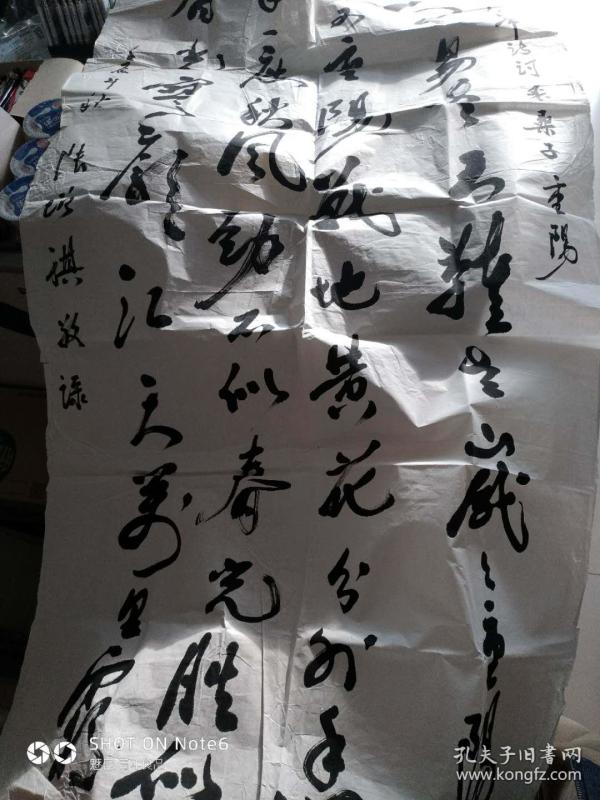 诗词采桑子 重陽
易老天难老岁々重陽
又重陽战地黄花分外香
年一度秋风劲不似春光胜似
春光寥廓江天万里霜
祺敬录
SHOT ON Note6
魅蓝
孔夫子旧书网
www.kongfz.com